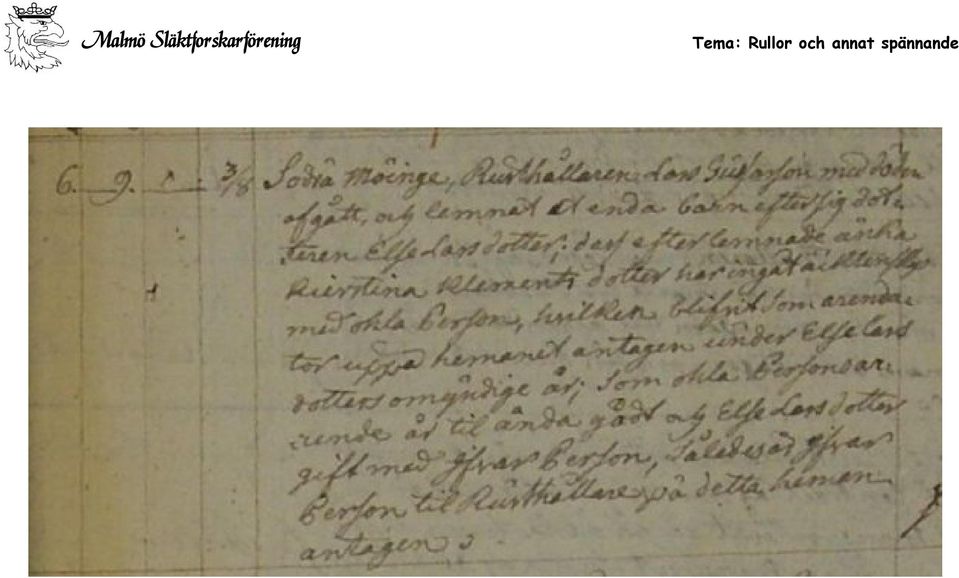 Malmö Släktforskarförening
Tema: Rullor och annat spännande
6. 9. 1 3/8 Södra Möinge, Rusthållaren Lars med döden
afgått, och lemnat et enda barn efter sig dot-
teren Else Lars dotter; dess efterlemnade änka
Kierstina Klements dotter har ingåt äcktenskap
med okla Person, hvilken blifvit som arenda-
tor uppå hemanet antagen under Else Lars
dotters omyndige år; som okla Persons ar-
rende år til ända gådt och Else Lars dotter
gift med Ifvar Person, således är Ifvar
Person til Rusthållare på detta heman
antagen.